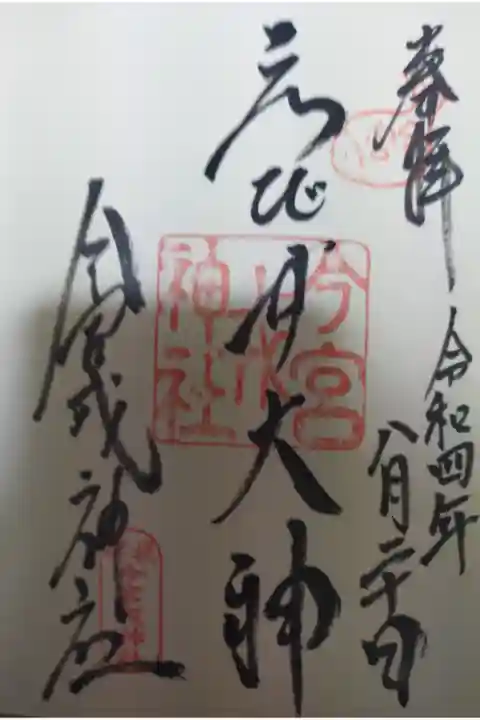 奉拝 令和四年
八月二十日
ゑび須大神
今宮戎神社
今宮
神社